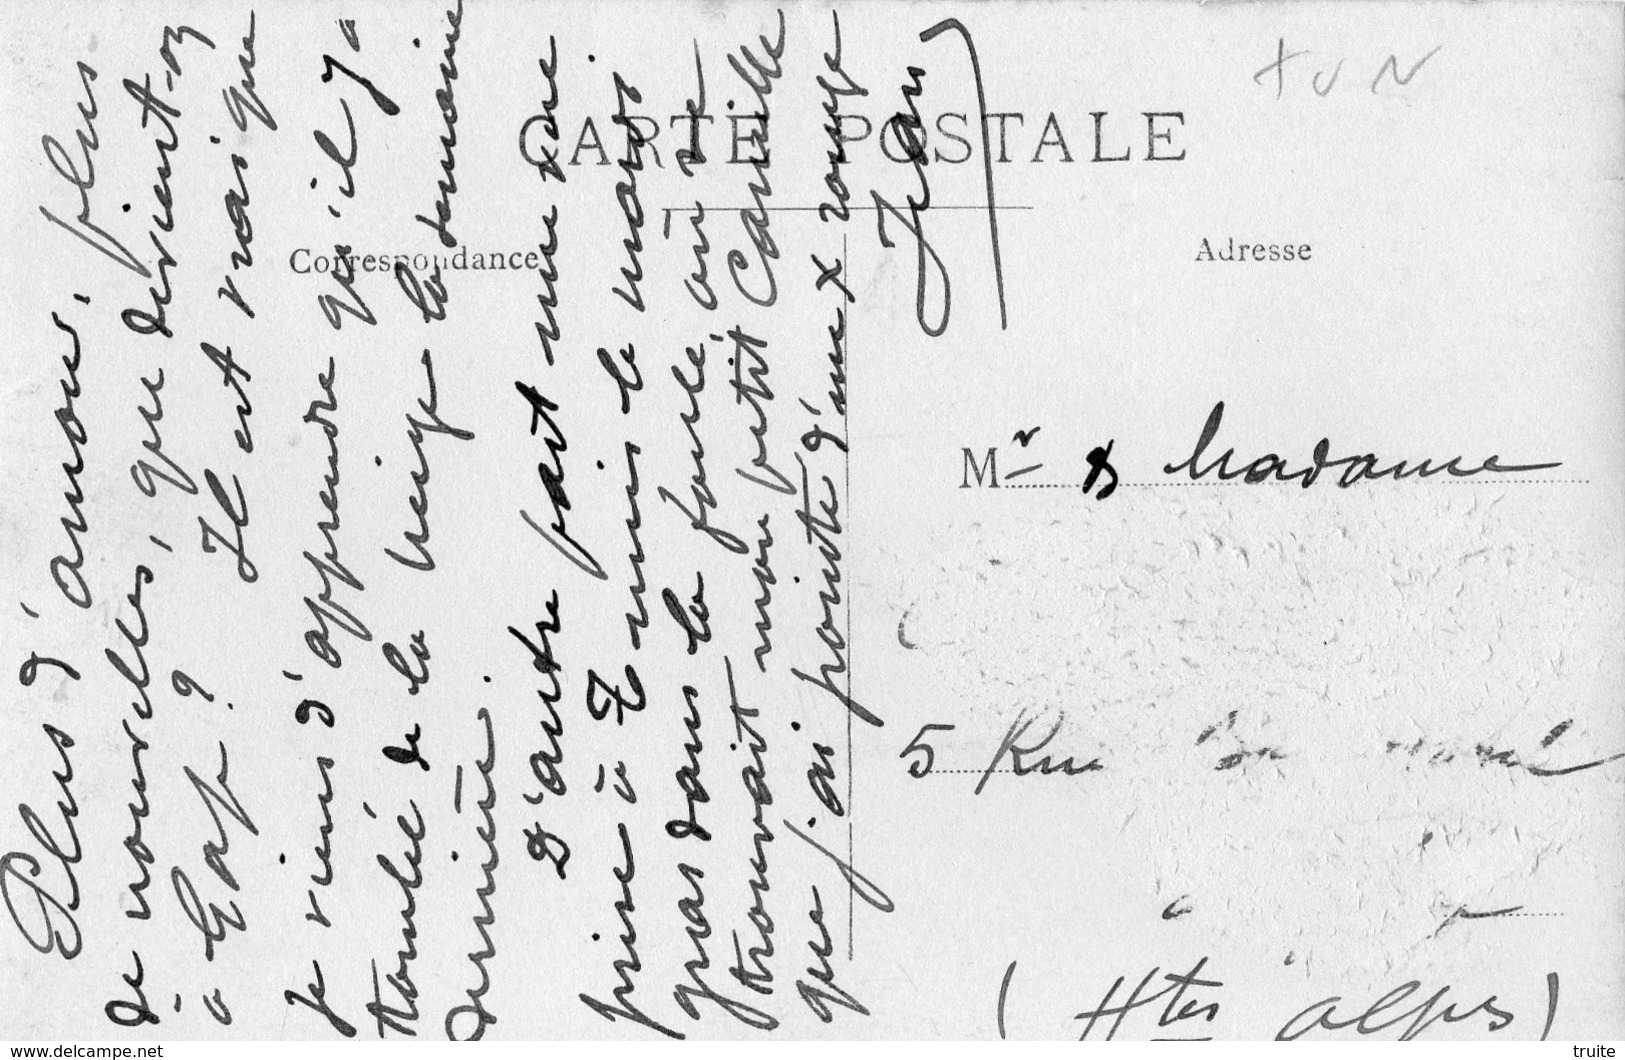 Plus d'amour, plus
de nouvelles, que devient-on
à Gap ? Il est vrai que
je viens d'apprendre qu'il y a
tombé de la neige la semaine
dernière.
D'autre part une vue
prise à T mis le mardi
gras dans la foule, où se
trouvait mon petit Camille
que j'ai pointé d'une X rouge
Jean
TUN
CARTE POSTALE
Correspondance
Adresse
Mr & Madame
5 Rue
à
(Htes Alpes)
www.delcampe.net
truite